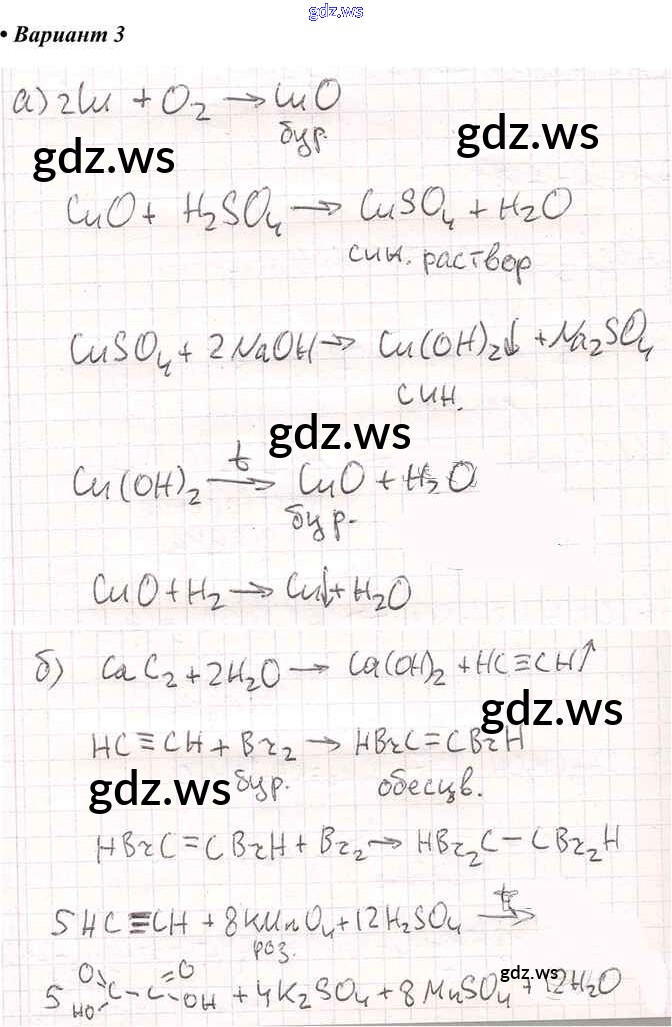 gdz.ws
• Вариант 3
а) 2Cu + O₂ → CuO
бур.
gdz.ws gdz.ws
CuO + H₂SO₄ → CuSO₄ + H₂O
син. раствор
CuSO₄ + 2NaOH → Cu(OH)₂↓ + Na₂SO₄
син.
gdz.ws
Cu(OH)₂ —t→ CuO + H₂O
бур.
CuO + H₂ → Cu↓ + H₂O
б) CaC₂ + 2H₂O → Ca(OH)₂ + HC≡CH↑
gdz.ws
HC≡CH + Br₂ → HBrC=CBrH
gdz.ws бур. обесцв.
HBrC=CBrH + Br₂ → HBr₂C–CBr₂H
5HC≡CH + 8KMnO₄ + 12H₂SO₄ —t→
роз.
gdz.ws
5 O HO C–C =O OH + 4K₂SO₄ + 8MnSO₄ + 12H₂O